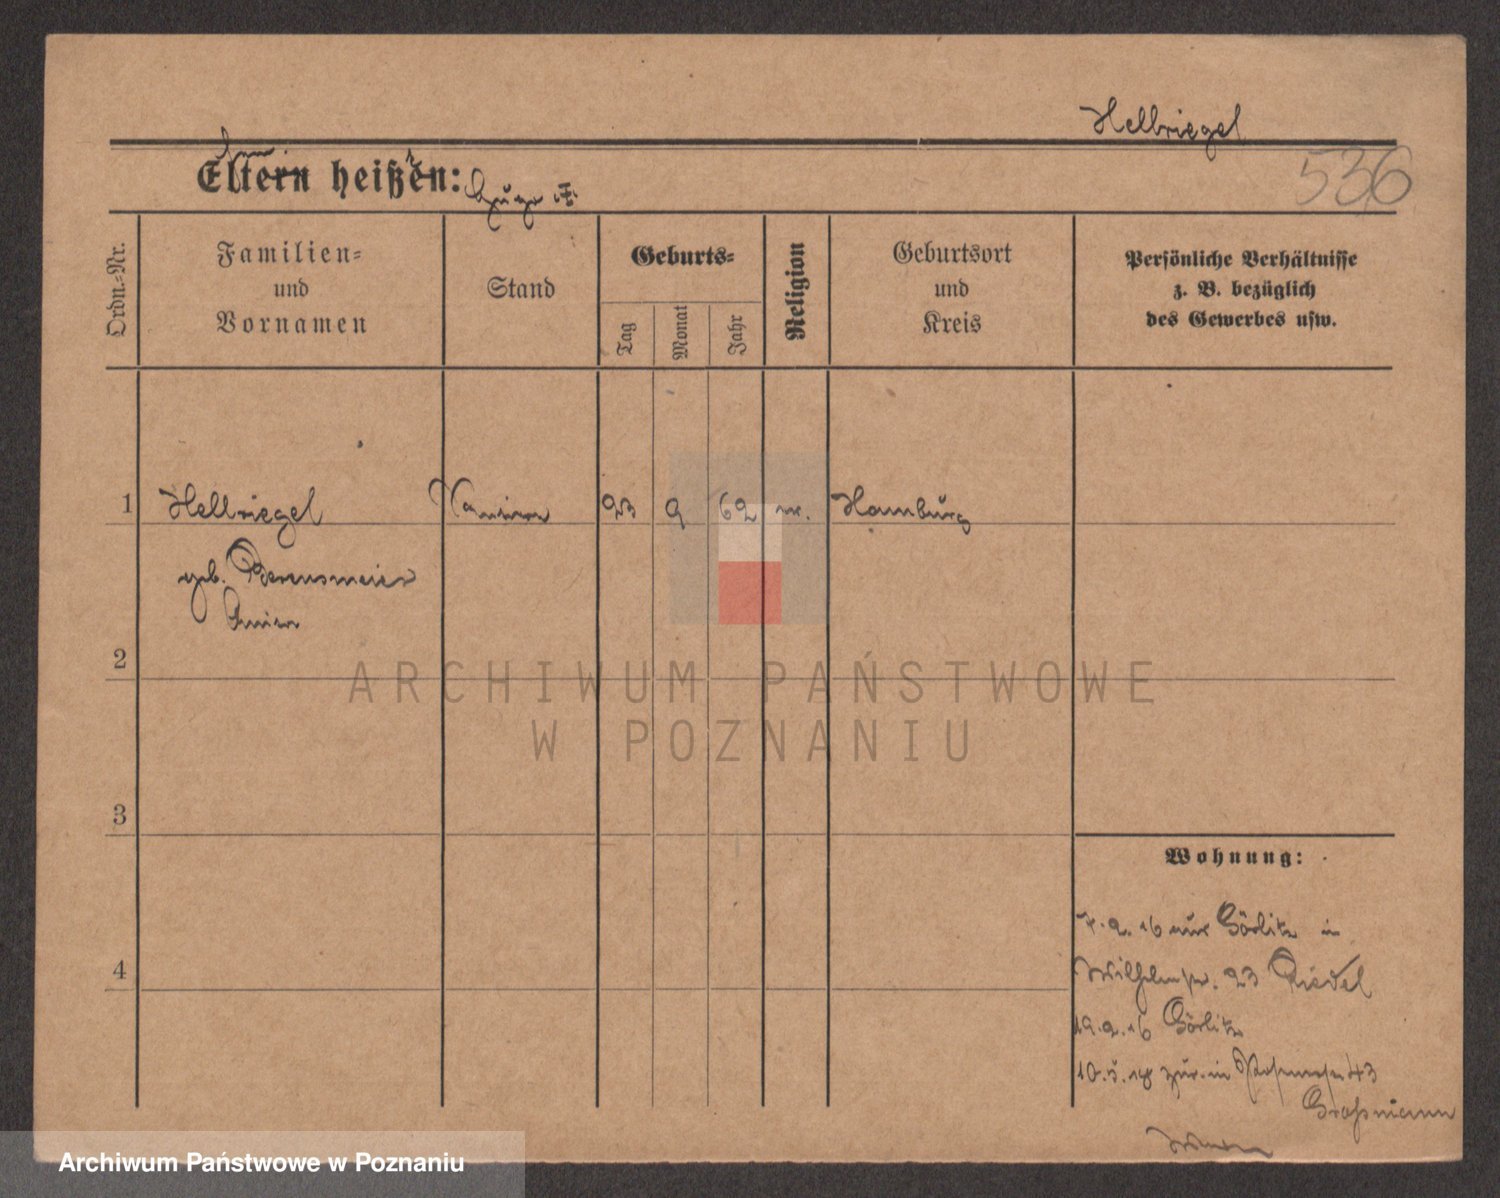 Hellriegel
536
Eltern heißen: Hugo †
Ordn.-Nr.
Familien-
und
Vornamen
Stand
Geburts-
Tag
Monat
Jahr
Religion
Geburtsort
und
Kreis
Persönliche Verhältnisse
z. B. bezüglich
des Gewerbes usw.
1 Hellriegel 23 9 62 Hamburg
geb.
2
3
4
Wohnung:
7.2.16 aus Görlitz in
Wilhelmstr. 23 Riedel
19.2.16 Görlitz
10.5.18 zur. in 43
Großmann
ARCHIWUM PAŃSTWOWE
W POZNANIU
Archiwum Państwowe w Poznaniu